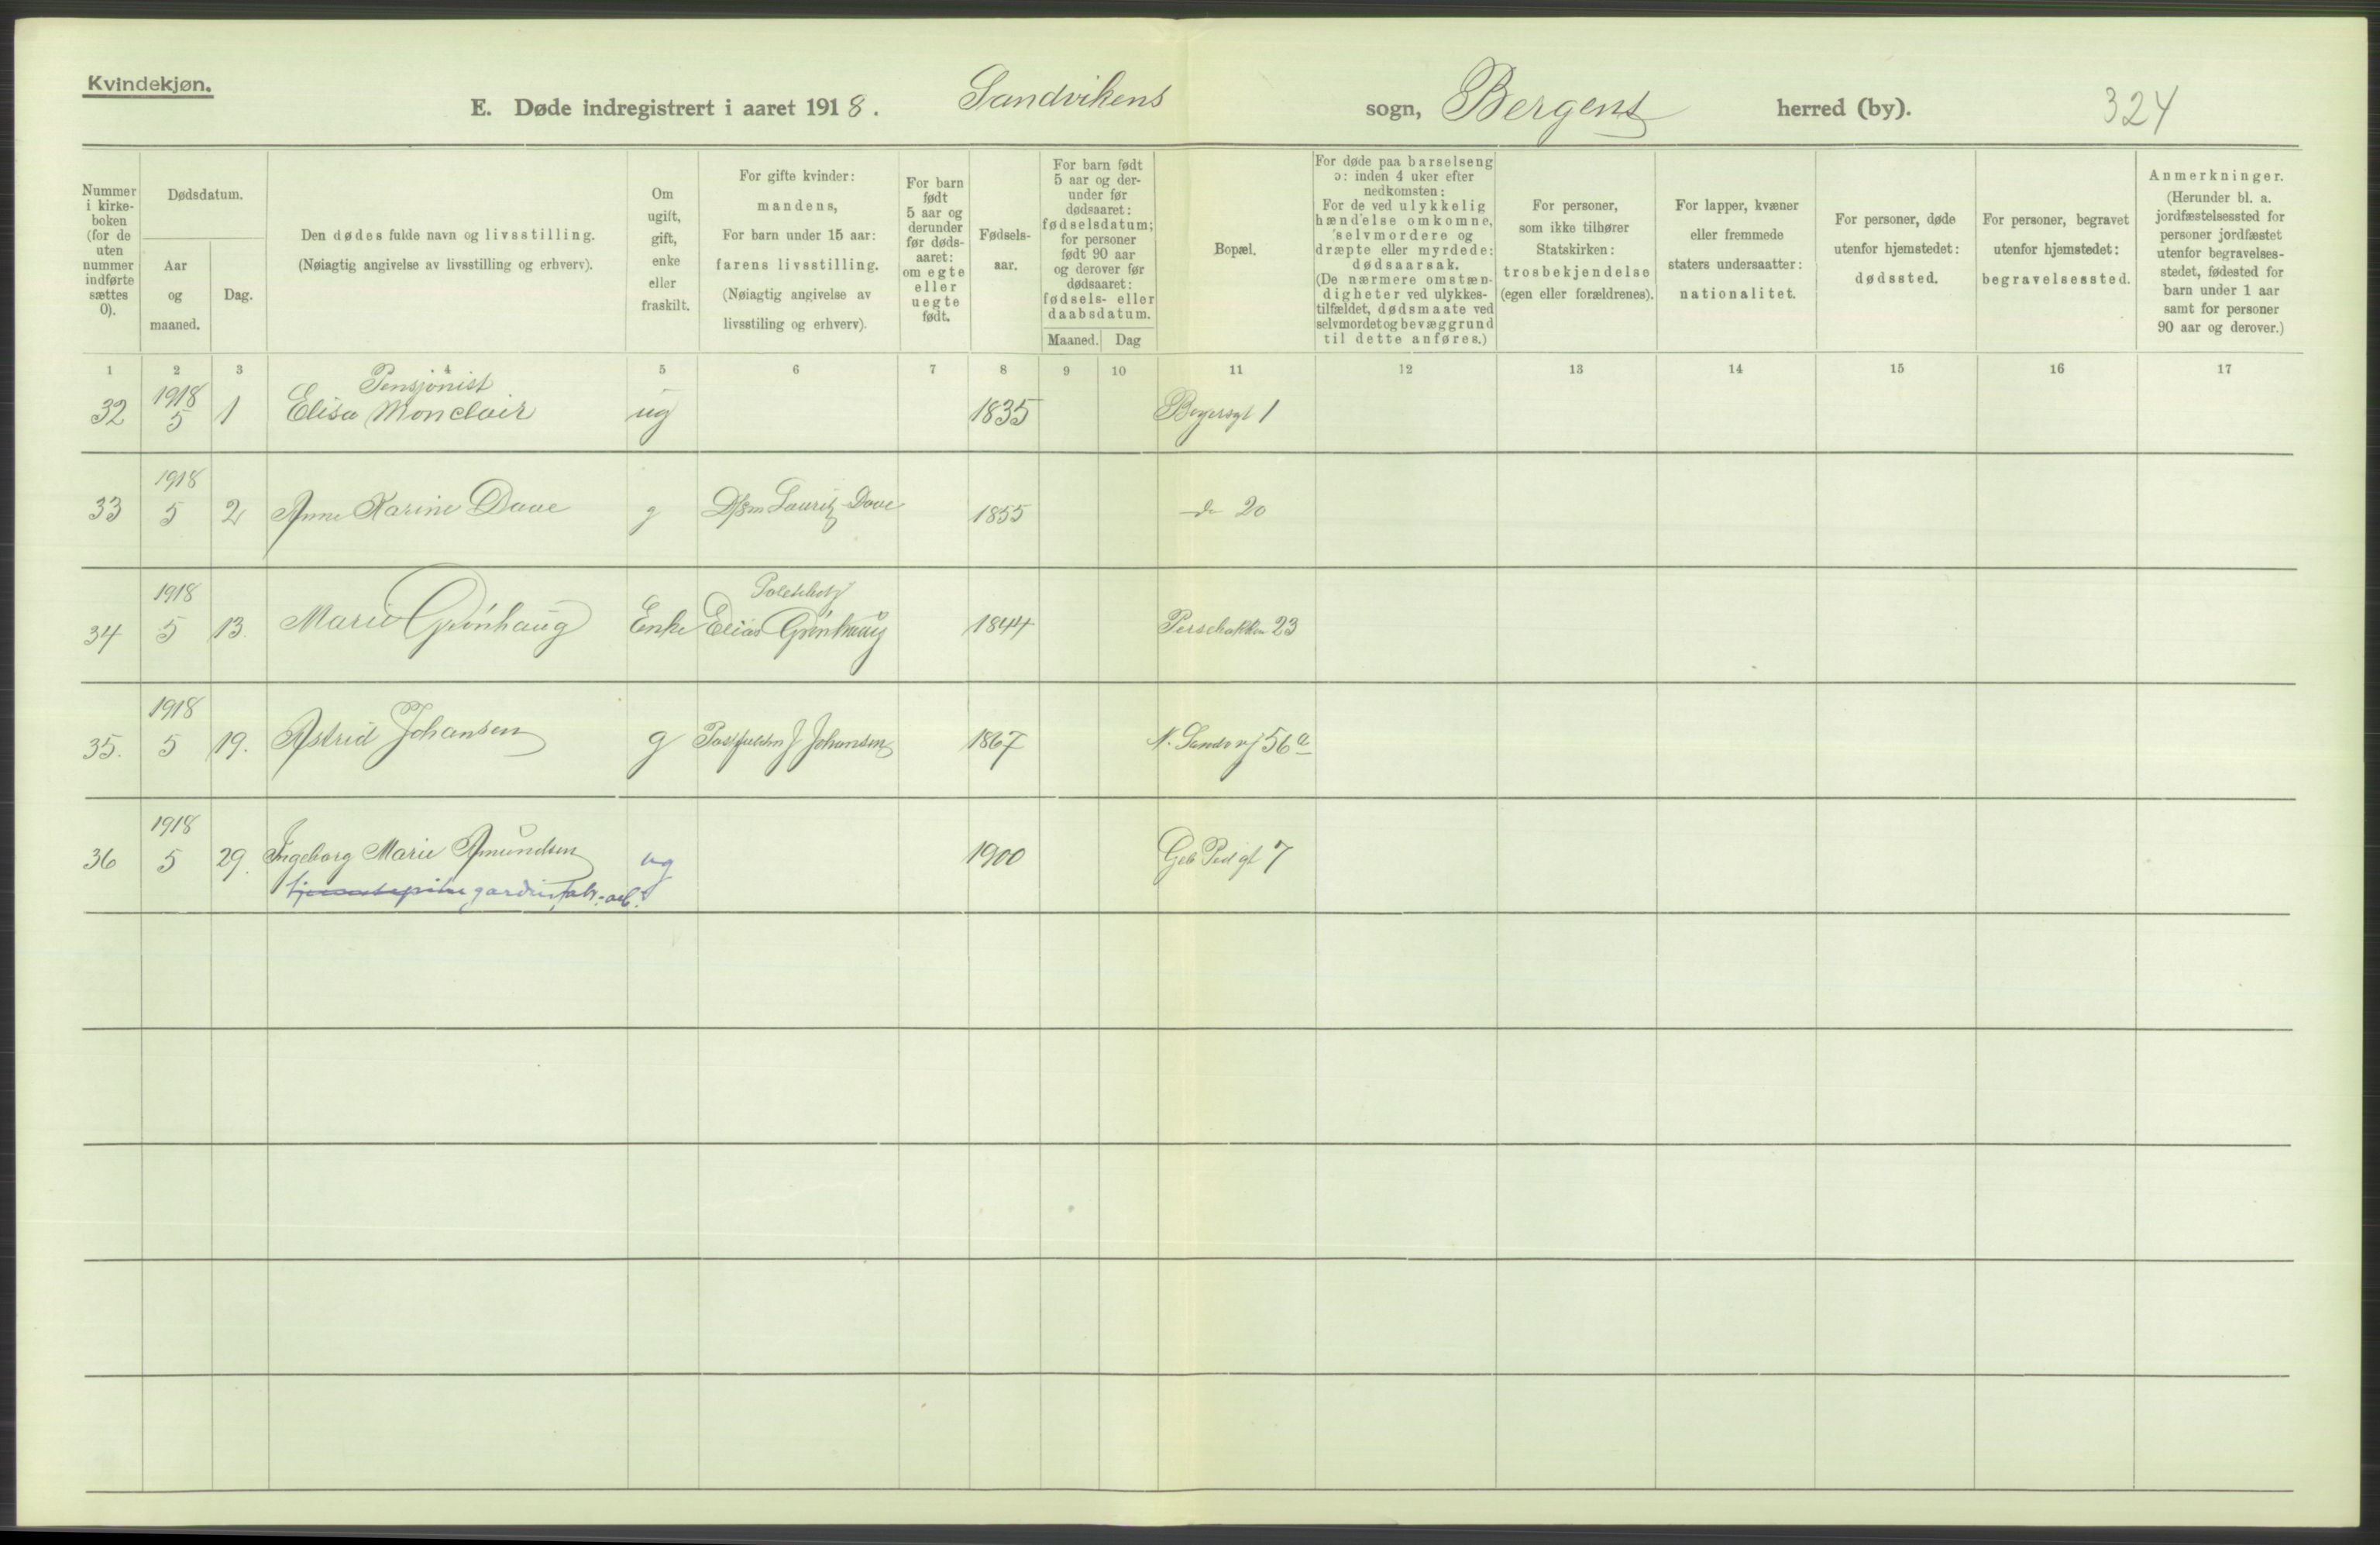 Kvindekjøn.
E. Døde indregistrert i aaret 1918. Sandvikens sogn, Bergens herred (by). 324
Nummer i kirke-boken (for de uten nummer indførte sættes 0).
Dødsdatum.
Aar og maaned.
Dag.
Den dødes fulde navn og livsstilling.
(Nøiagtig angivelse av livsstilling og erhverv).
Om ugift, gift, enke eller fraskilt.
For gifte kvinder: mandens,
For barn under 15 aar: farens livsstilling.
(Nøiagtig angivelse av livsstiling og erhverv).
For barn født 5 aar og derunder før døds-aaret: om egte eller uegte født.
Fødsels-aar.
For barn født 5 aar og der-under før dødsaaret: fødselsdatum; for personer født 90 aar og derover før dødsaaret: fødsels- eller daabsdatum.
Maaned. Dag
Bopæl.
For døde paa barselseng ɔ: inden 4 uker efter nedkomsten:
For de ved ulykkelig hændelse omkomne, selvmordere og dræpte eller myrdede: dødsaarsak.
(De nærmere omstæn-digheter ved ulykkes-tilfældet, dødsmaate ved selvmordet og bevæggrund til dette anføres.)
For personer, som ikke tilhører Statskirken: trosbekjendelse (egen eller forældrenes).
For lapper, kvæner eller fremmede staters undersaatter: nationalitet.
For personer, døde utenfor hjemstedet: dødssted.
For personer, begravet utenfor hjemstedet: begravelsessted.
Anmerkninger.
(Herunder bl. a. jordfæstelsessted for personer jordfæstet utenfor begravelses-stedet, fødested for barn under 1 aar samt for personer 90 aar og derover.)
1 2 3 4 5 6 7 8 9 10 11 12 13 14 15 16 17
Pensjonist
32 1918 5 1 Elisa Monclair ug 1835 1
33 1918 5 2 Anne Karine Daae g Lauritz Daae 1855 do 20
34 1918 5 13. Marie Grønhaug Enke Elias Grønhaug 1844 23
35. 1918 5 19. Astrid Johansen g J Johansen 1867 N. Sandv 56 a
36 1918 5 29. Ingeborg Marie Amundsen ug 1900 Geb Ped gt 7